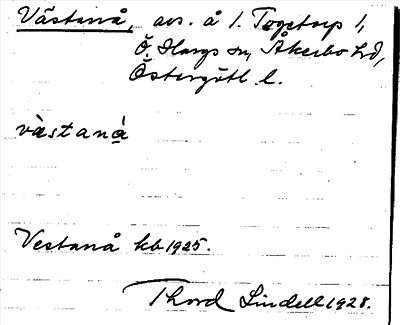 Västanå, avs. å 1. Togetorp 1,
Ö. Hargs sn, Åkerbo hd,
Östergötl. l.
vàstaná
Vestanå kb 1925.
Thord Lindell 1928.